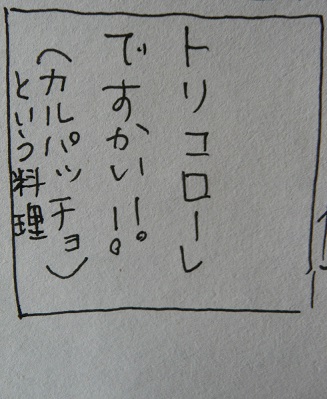 トリコローレ
ですかい!!
(カルパッチョ)
という料理